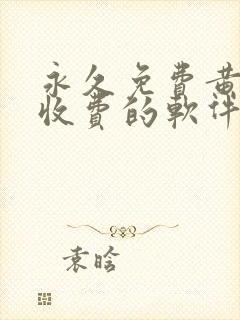 永久免费黄
收费的软件
袁晗